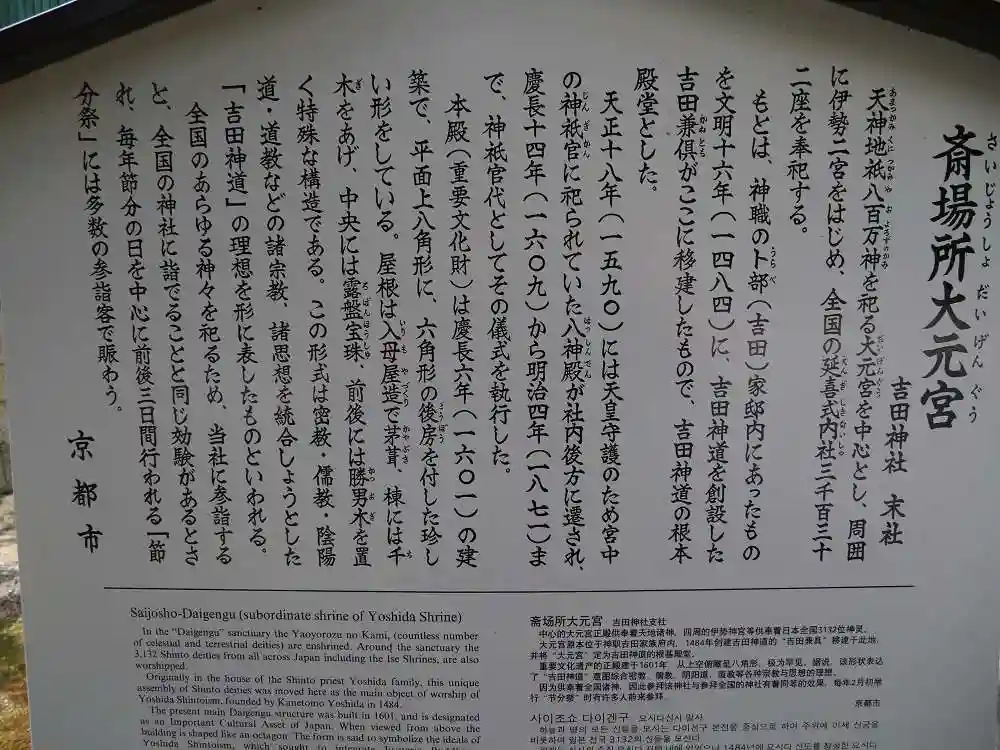 斎場所大元宮
さいじょうしょ だいげんぐう
吉田神社 末社
天神地祇八百万神を祀る大元宮を中心とし、周囲
に伊勢二宮をはじめ、全国の延喜式内社三千百三十
二座を奉祀する。
もとは、神職の卜部（吉田）家邸内にあったもの
を文明十六年（一四八四）に、吉田神道を創設した
吉田兼倶がここに移建したもので、吉田神道の根本
殿堂とした。
天正十八年（一五九〇）には天皇守護のため宮中
の神祇官に祀られていた八神殿が社内後方に遷され、
慶長十四年（一六〇九）から明治四年（一八七一）ま
で、神祇官代としてその儀式を執行した。
本殿（重要文化財）は慶長六年（一六〇一）の建
築で、平面上八角形に、六角形の後房を付した珍し
い形をしている。屋根は入母屋造で茅葺、棟には千
木をあげ、中央には露盤宝珠、前後には勝男木を置
く特殊な構造である。この形式は密教・儒教・陰陽
道・道教などの諸宗教、諸思想を統合しようとした
「吉田神道」の理想を形に表したものといわれる。
全国のあらゆる神々を祀るため、当社に参詣する
と、全国の神社に詣でることと同じ効験があるとさ
れ、毎年節分の日を中心に前後三日間行われる「節
分祭」には多数の参詣客で賑わう。
京都市
Saijosho-Daigengu (subordinate shrine of Yoshida Shrine)
In the "Daigengu" sanctuary the Yaoyorozu no Kami, (countless number
of celestial and terrestrial deities) are enshrined. Around the sanctuary the
3,132 Shinto deities from all across Japan including the Ise Shrines, are also
worshipped.
Originally in the house of the Shinto priest Yoshida family, this unique
assembly of Shinto deities was moved here as the main object of worship of
Yoshida Shintoism, founded by Kanetomo Yoshida in 1484.
The present main Daigengu structure was built in 1601, and is designated
as an Important Cultural Asset of Japan. When viewed from above the
building is shaped like an octagon. The form is said to symbolize the ideals of
Yoshida Shintoism, which sought to integrate
斋场所大元宫 吉田神社支社
中心的大元宫正殿供奉着天地诸神，四周的伊势神宫等供奉着日本全国3132位神灵。
大元宫原本位于神职吉田家族府内，1484年创建吉田神道的"吉田兼具"移建于此地，
并将"大元宫"定为吉田神道的根基殿堂。
重要文化遗产的正殿建于1601年，从上空俯瞰呈八角形，极为罕见。据说，该形状表达
了"吉田神道"意图综合密教、儒教、阴阳道、道教等各种宗教与思想的理想。
因为供奉着全国诸神，因此参拜该神社与参拜全国的神社有着同等的效果，每年2月初举
行"节分祭"时有许多人前来参拜。
京都市
사이죠쇼 다이겐구 요시다신사 말사